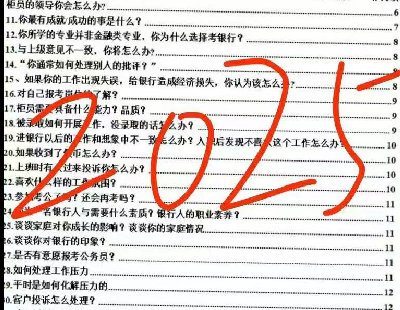 柜员的领导你会怎么办?
11.你最有成就/成功的事是什么? 6
12.你所学的专业并非金融类专业,你为什么选择考银行? 7
13.与上级意见不一致,你将怎么办? 7
14.“你通常如何处理别人的批评?” 8
15、如果你的工作出现失误,给银行造成经济损失,你认为该怎么办? 8
16.对自己报考岗位的了解? 9
17.柜员需要具备什么能力?品质? 9
18.被录取如何开展工作,没录取的话怎么办?
19.进银行以后的工作和想象中不一致怎么办?入职后发现不喜欢这个工作怎么办? 10
20.如果收到了假币怎么办? 10
21.上班时有人过来投诉你怎么办? 10
22.喜欢什么样的工作氛围? 10
23.参加考公了吗?还会再考吗? 11
24. 一名银行人与需要什么素质?银行人的职业素养? 11
25.谈谈家庭对你成长的影响?谈谈你的家庭情况 11
26.谈谈你对银行的印象? 11
27.是否有意愿报考公务员? 11
28.如何处理工作压力 11
29.平时是如何化解压力的 12
30.客户投诉怎么处理? 12
2025